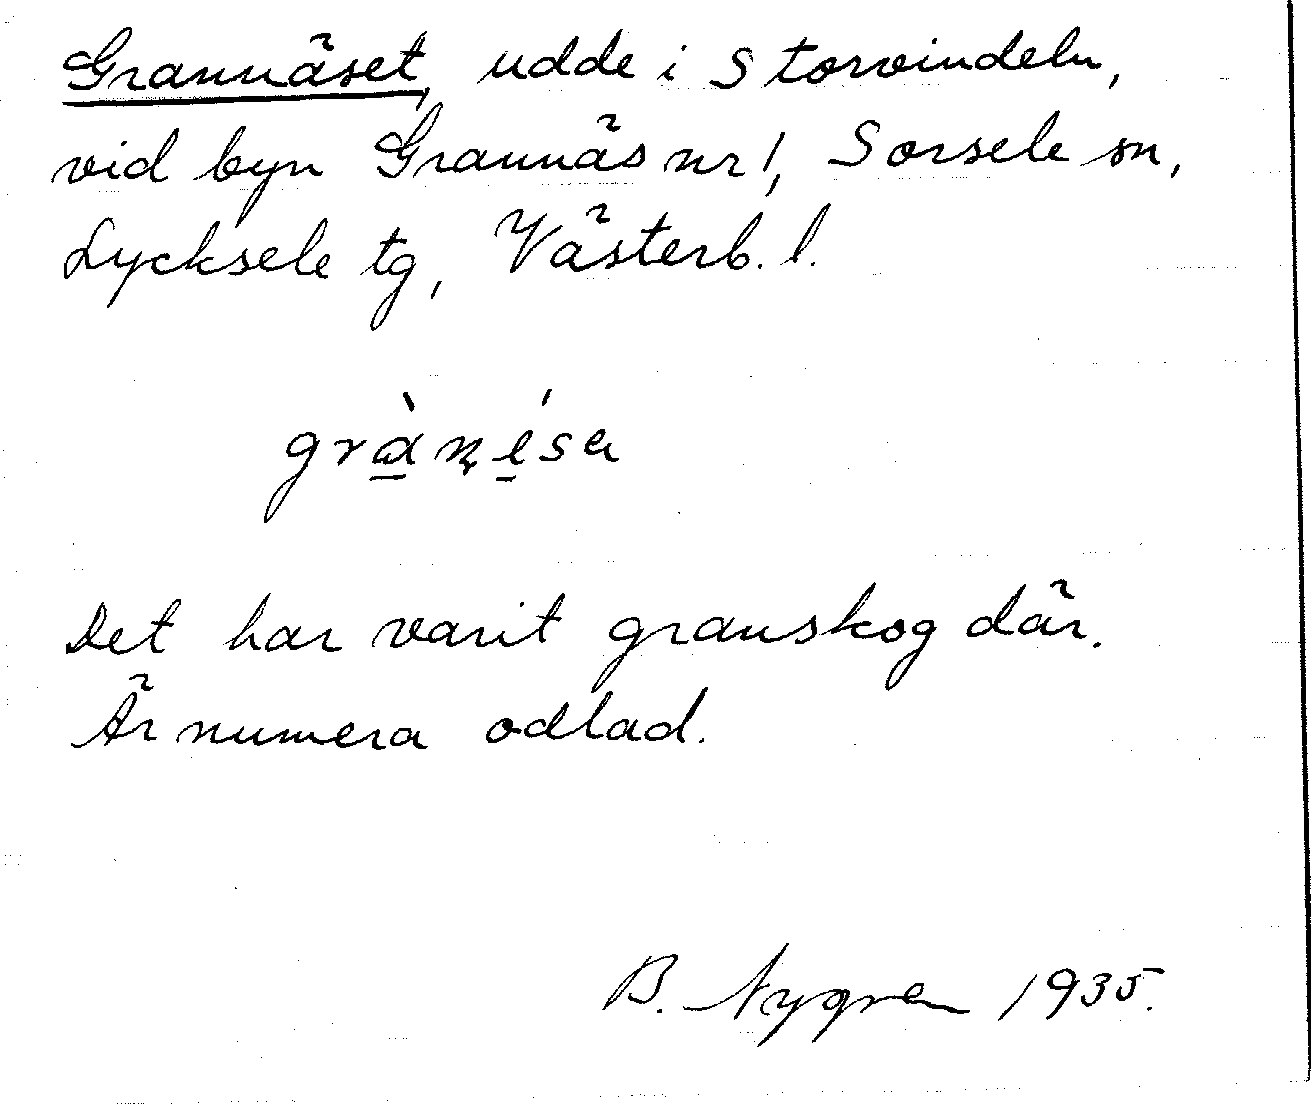 Grannäset, udde i Storvindeln,
vid byn Grannäs nr 1, Sorsele sn,
Lycksele tg, Västerb. l.
Det har varit granskog där.
Är numera odlad.
B. Nygren 1935.